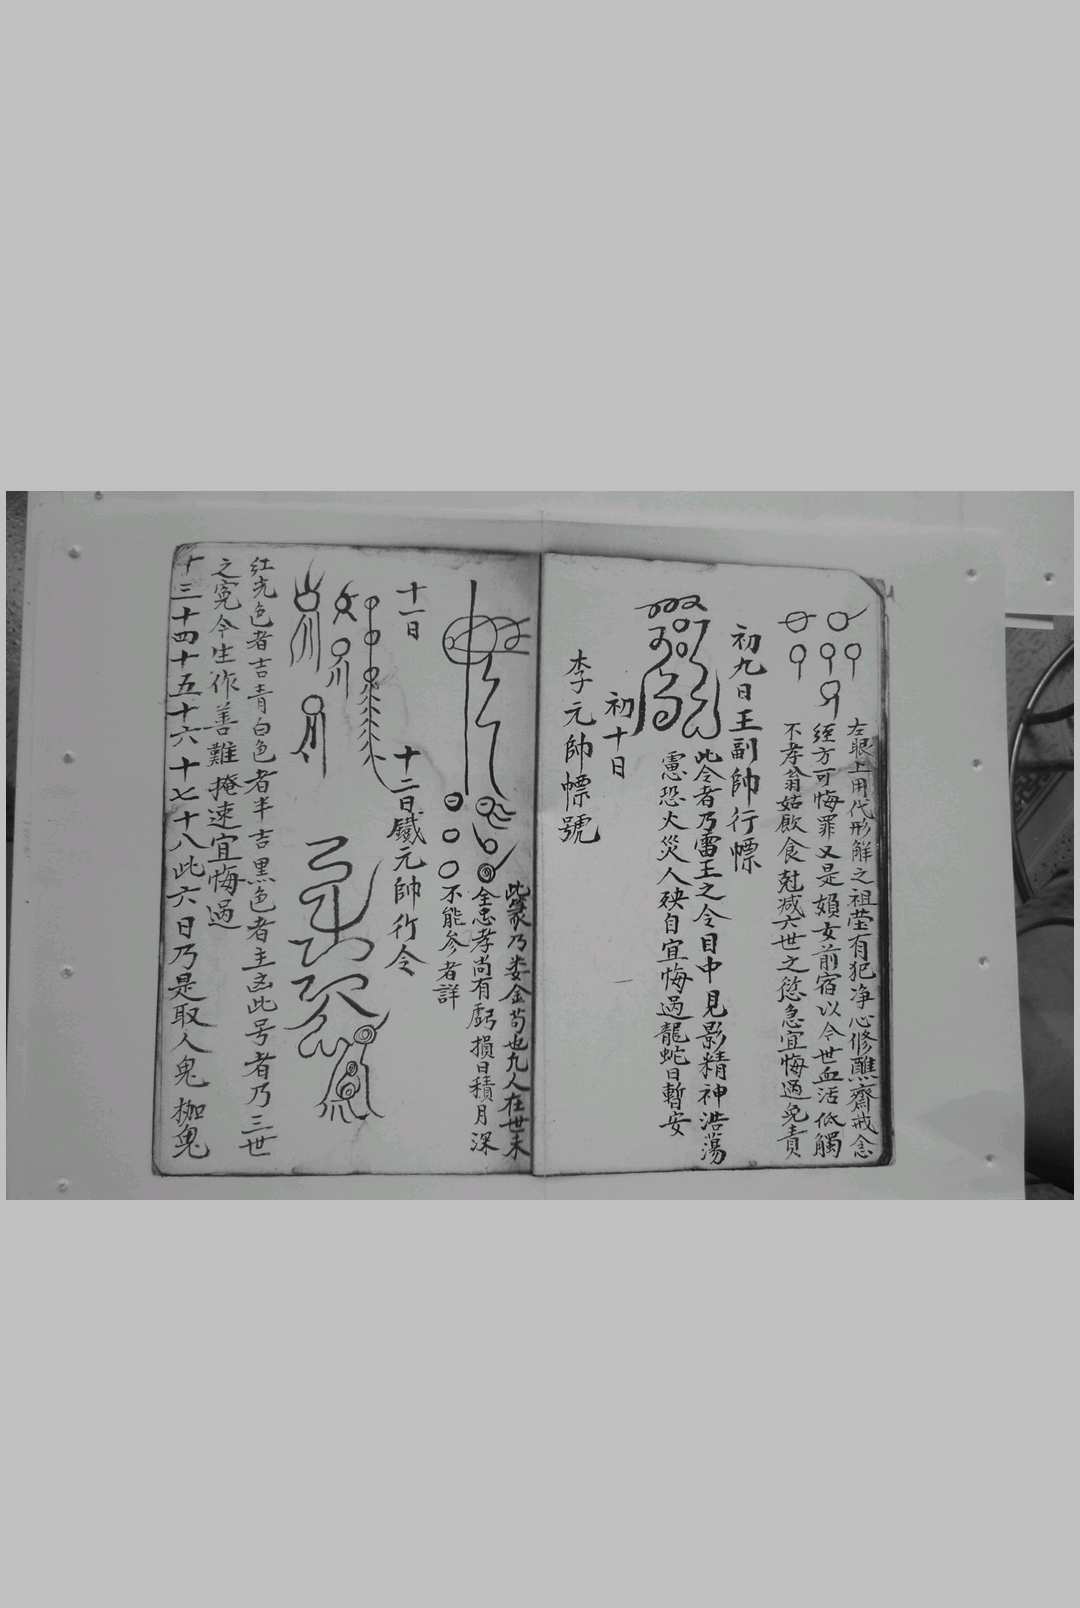 左眼上用代形解之祖茔有犯净心修醮齋戒念
經方可悔罪又是頞女前宿以今世血活低觸
不孝翁姑飲食尅减六世之愆急宜悔過免責
初九日王副帥行幖
此令者乃雷王之令目中見影精神浩蕩
憲恐火災人殃自宜悔過龍蛇日暫安
初十日
李元帥幖號
此篆乃娄金苟也九人在世未
全忠孝尚有虧損日積月深
不能参者詳
十一日
十二日鐵元帥行令
红光色者吉青白色者半吉黑色者主凶此号者乃三世
之寃今生作善難掩速宜悔過
十三十四十五十六十七十八此六日乃是取人鬼枷鬼